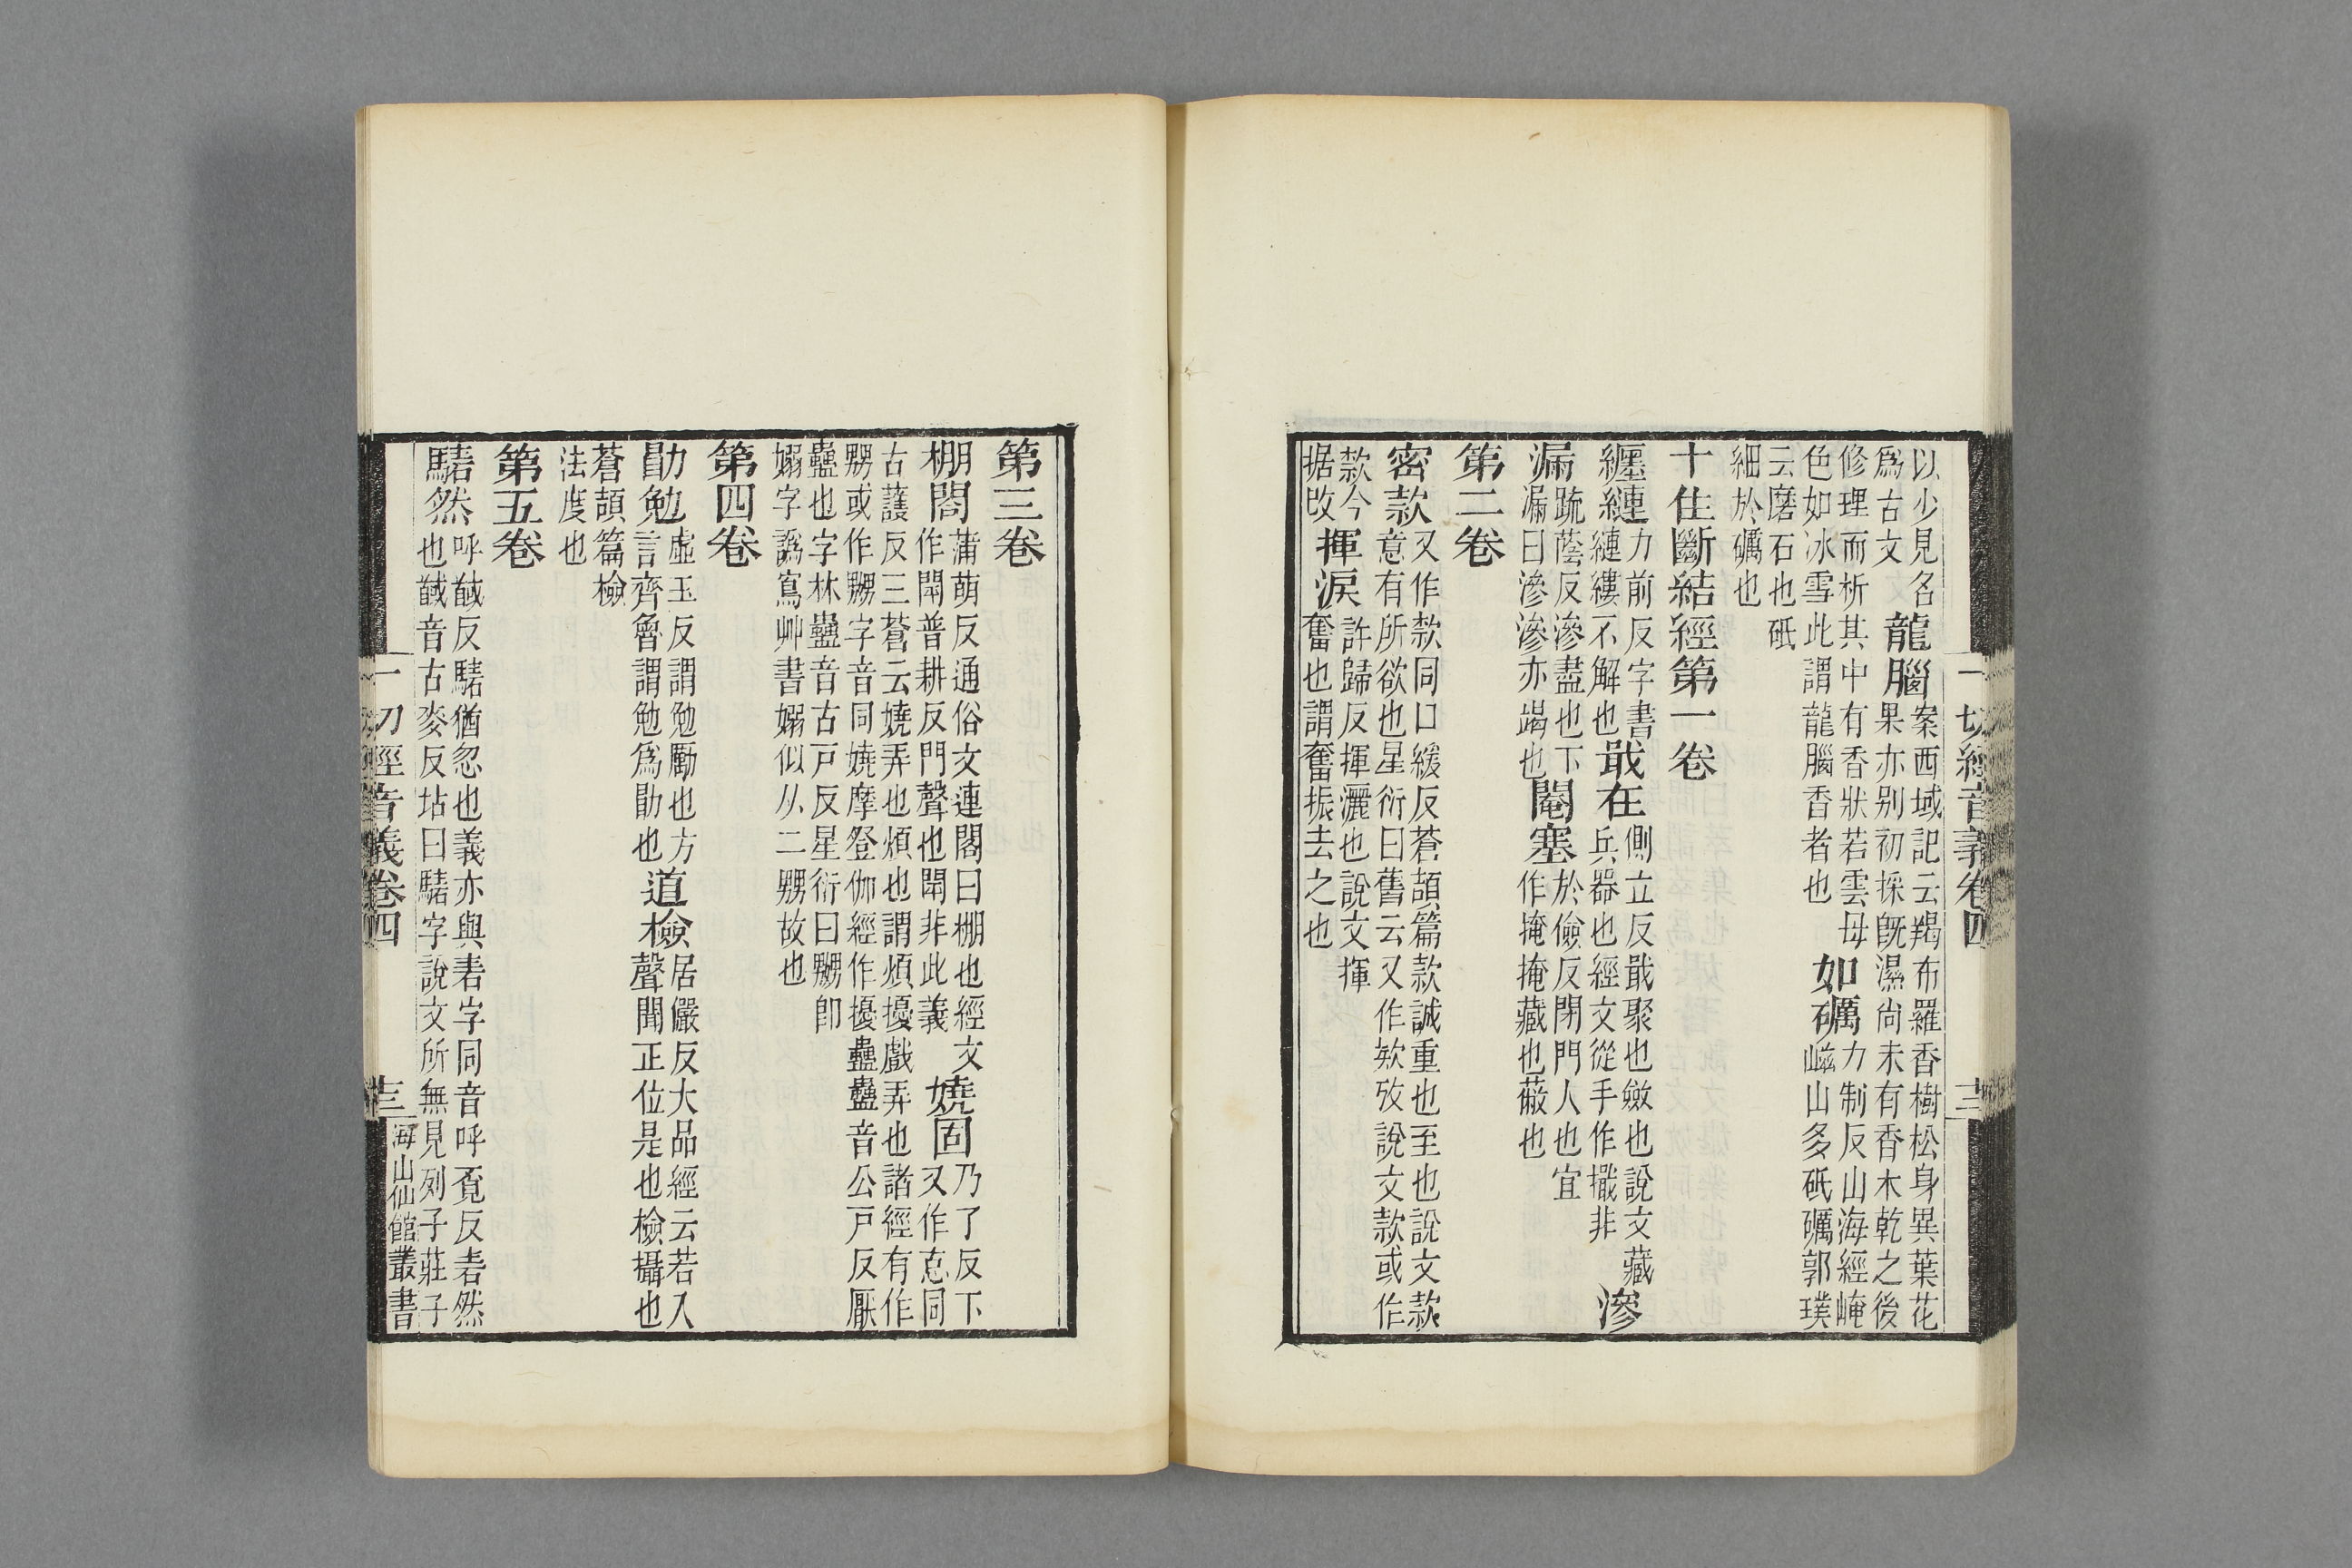 以少見名爲古文龍腦案西域記云羯布羅香樹松身異葉花果亦别初採旣濕尚未有香木乾之後
修理而析其中有香狀若雲母色如冰雪此謂龍腦香者也如礪力制反山海經崦嵫山多砥礪郭璞
云磨石也砥細於礪也
十住斷結經第一卷
纏縺力前反字書縺縷不解也戢在側立反戢聚也斂也說文藏兵器也經文從手作擑非滲
漏疏蔭反滲盡也下漏曰滲滲亦竭也閹塞於儉反閉門人也宜作掩掩藏也蔽也
第二卷
密款又作欵同口緩反蒼頡篇款誠重也至也說文款意有所欲也星衍曰舊云又作欵攷說文款或作
款今据改揮淚許歸反揮灑也說文揮奮也謂奮振去之也
一切經音義卷四
十三
第三卷
棚閣蒲萌反通俗文連閣曰棚也經文作閛普耕反門聲也閛非此義嬈固乃了反下又作怘同
古護反三蒼云嬈弄也煩也謂煩擾戲弄也諸經有作嬲或作嬲字音同嬈摩登伽經作擾蠱蠱音公戸反厭
蠱也字林蠱音古戸反星衍曰嬲卽嫋字譌寫艸書嫋似从二嬲故也
第四卷
勖勉虛玉反謂勉勵也方言齊魯謂勉爲勖也道檢居儼反大品經云若入聲聞正位是也檢攝也
蒼頡篇檢法度也
第五卷
騞然呼馘反騞猶忽也義亦與砉字同音呼覔反砉然也馘音古麥反坫曰騞字說文所無見列子莊子
一切經音義卷四
十三
海山仙館叢書